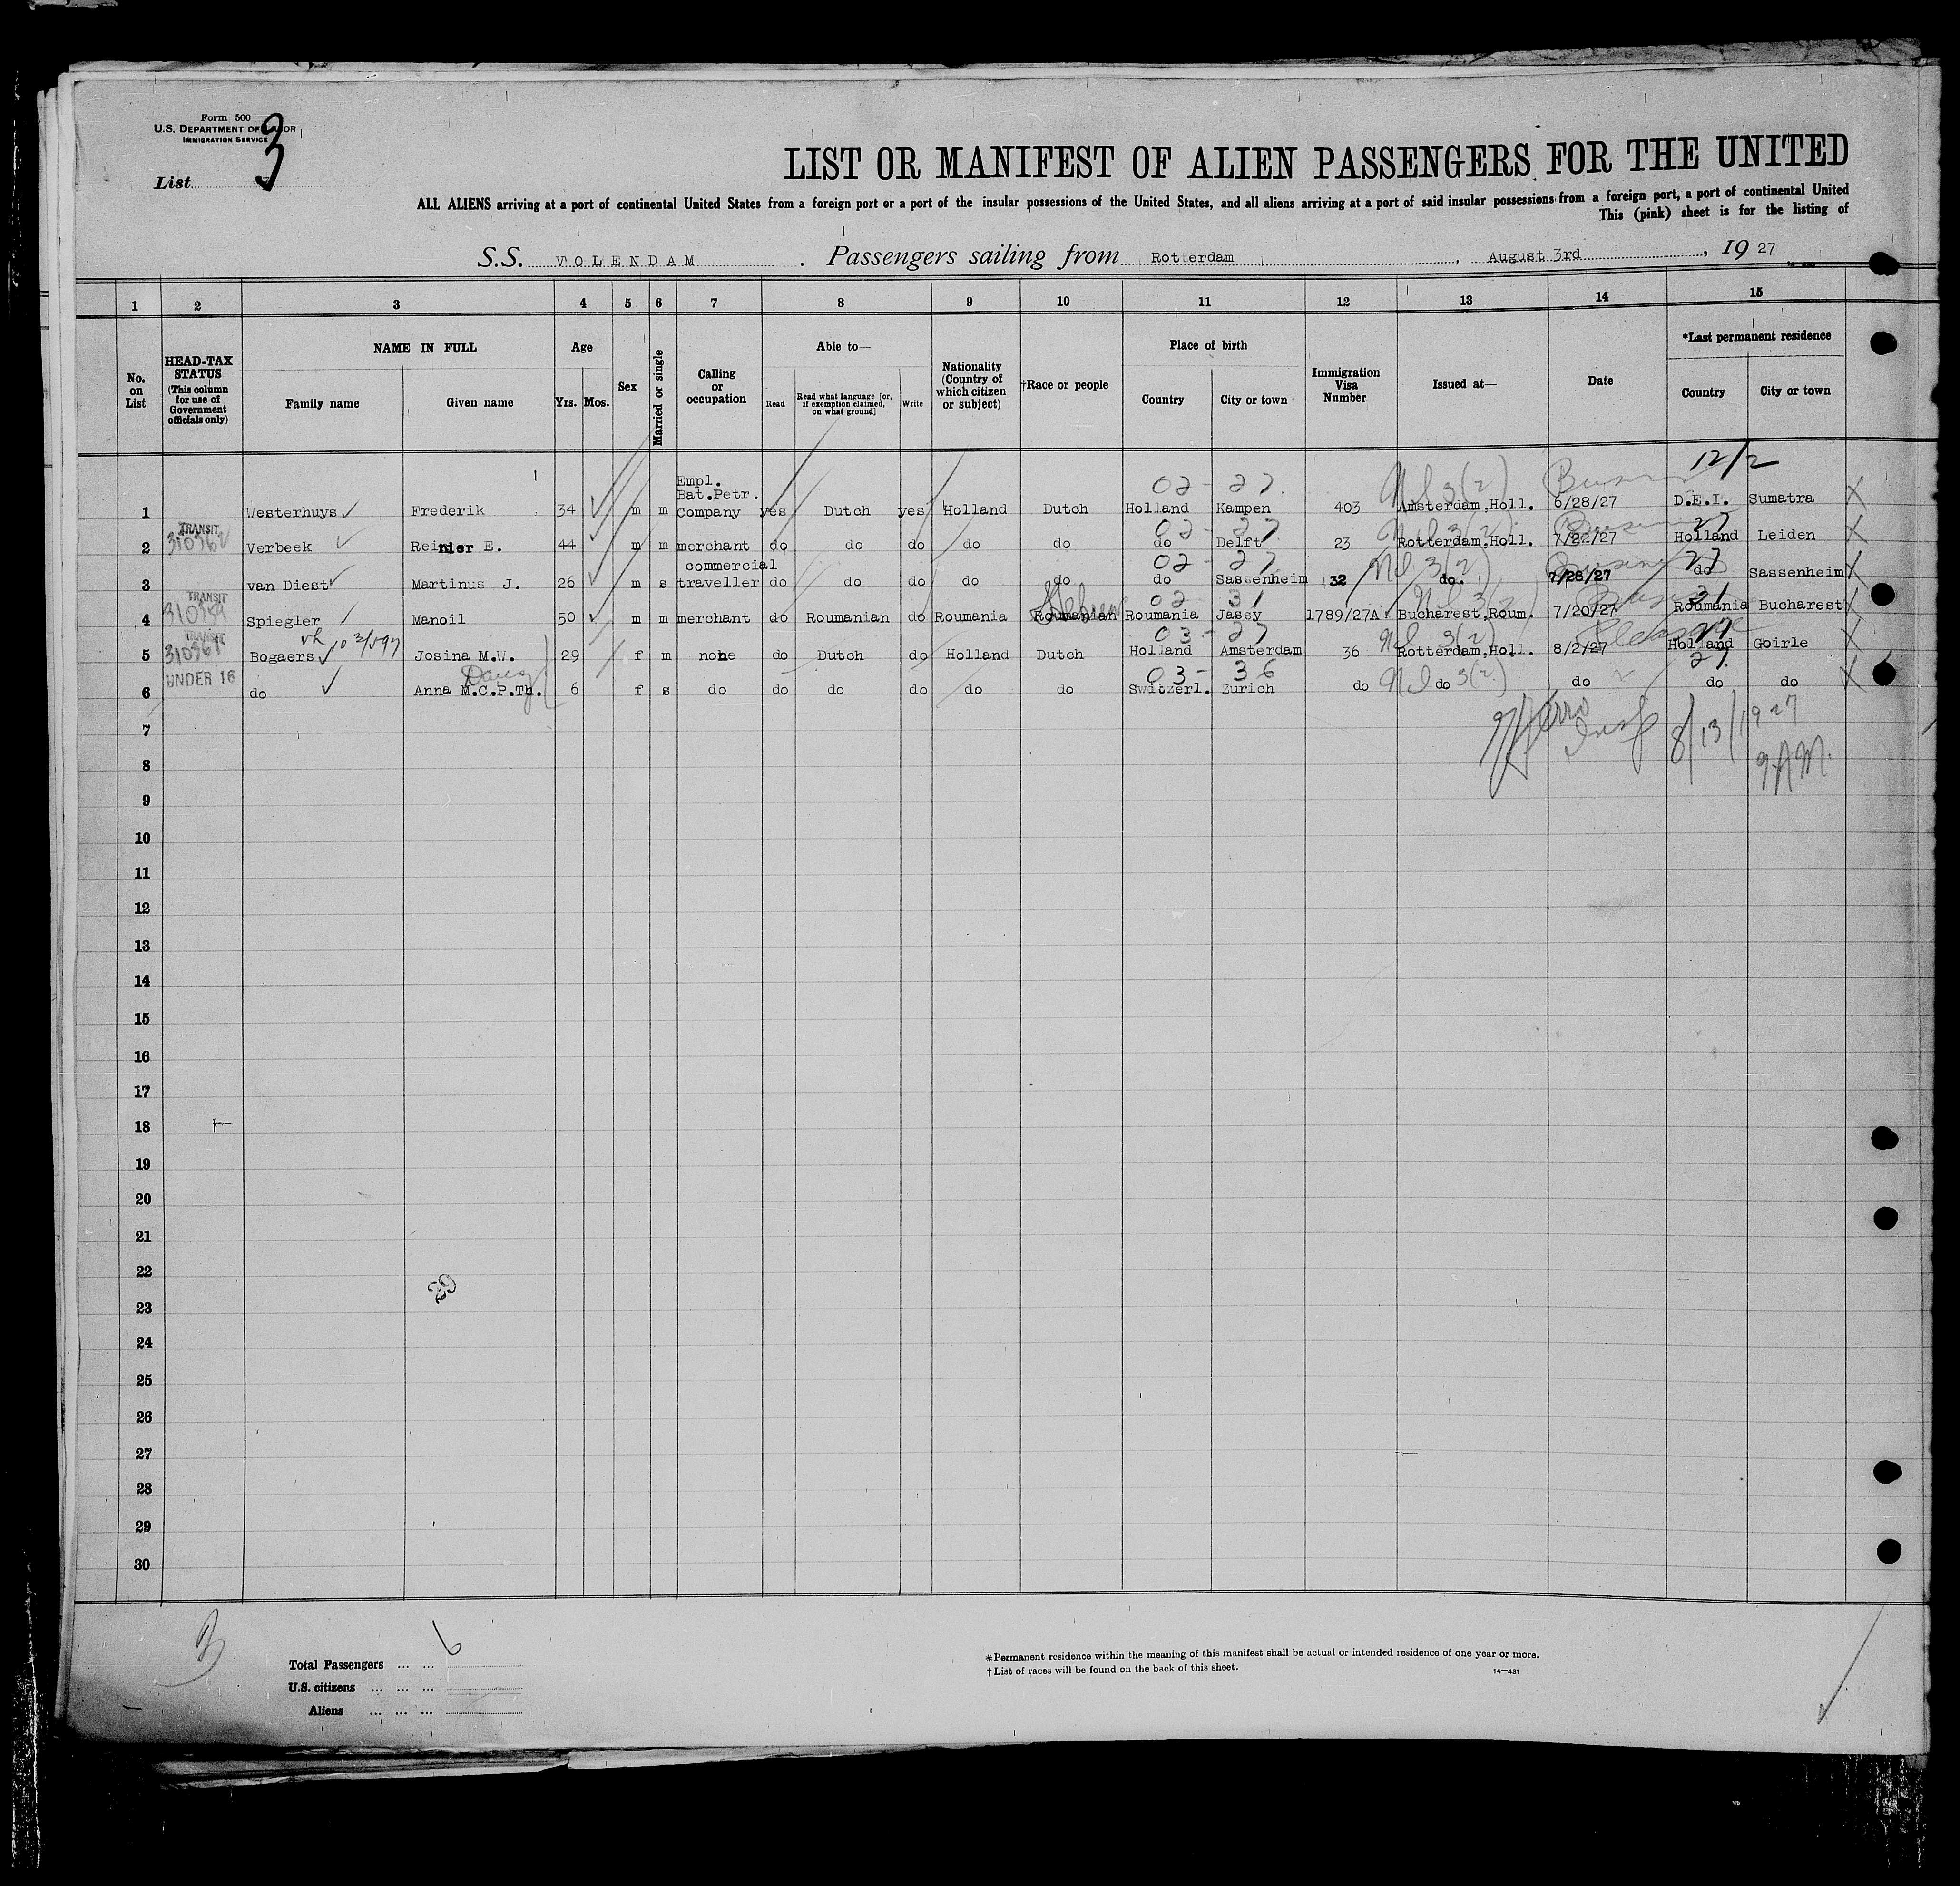 Form 500
U.S. DEPARTMENT OF LABOR
IMMIGRATION SERVICE
List 3
LIST OR MANIFEST OF ALIEN PASSENGERS FOR THE UNITED
ALL ALIENS arriving at a port of continental United States from a foreign port or a port of the insular possessions of the United States, and all aliens arriving at a port of said insular possessions from a foreign port, a port of continental United
This (pink) sheet is for the listing of
S.S. VOLENDAM. Passengers sailing from Rotterdam, August 3rd, 19 27
1 2 3 4 5 6 7 8 9 10 11 12 13 14 15
No. on List
HEAD-TAX STATUS (This column for use of Government officials only)
NAME IN FULL
Family name
Given name
Age
Yrs. Mos.
Sex
Married or single
Calling or occupation
Able to—
Read
Read what language [or, if exemption claimed, on what ground]
Write
Nationality (Country of which citizen or subject)
†Race or people
Place of birth
Country
City or town
Immigration Visa Number
Issued at—
Date
*Last permanent residence
Country
City or town
12/2
02 - 27 Nil 3(2)
1 Westerhuys Frederik 34 m m Empl. Bat.Petr. Company yes Dutch yes Holland Dutch Holland Kampen 403 Amsterdam,Holl. 6/28/27 D.E.I. Sumatra
02 - 27 Nil 3(2) 27
2 TRANSIT Verbeek Reinier E. 44 m m merchant do do do do do do Delft 23 Rotterdam,Holl. 7/22/27 Holland Leiden
02 - 27 Nil 3(2) 27
3 van Diest Martinus J. 26 m s commercial traveller do do do do do do Sassenheim 32 do. 7/28/27 do Sassenheim
02 31 Nil 3(2) 31
4 TRANSIT 310359 Spiegler Manoil 50 m m merchant do Roumanian do Roumania Roumanian Hebrew Roumania Jassy 1789/27A Bucharest,Roum. 7/20/27 Roumania Bucharest
03 - 27 Nil 3(2) Pleasure 27
5 TRANSIT Bogaers Josina M.W. 29 f m none do Dutch do Holland Dutch Holland Amsterdam 36 Rotterdam,Holl. 8/2/27 Holland Goirle
Daug 03 - 36 Nil 3(2) 27
6 UNDER 16 do Anna M.C.P.Th. 6 f s do do do do do do Switzerl. Zurich do do do do do
7 Insp 8/13/1927
8 9 AM.
9
10
11
12
13
14
15
16
17
18
19
20
21
22
23
24
25
26
27
28
29
30
3
Total Passengers ... ... 6
U.S. citizens ... ... ...
Aliens ... ... ...
*Permanent residence within the meaning of this manifest shall be actual or intended residence of one year or more.
†List of races will be found on the back of this sheet.
14—481